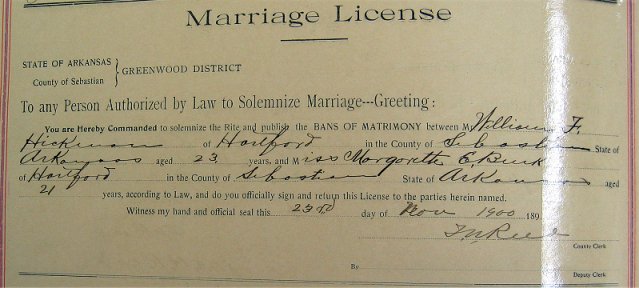 Marriage License
STATE OF ARKANSAS
County of Sebastian
GREENWOOD DISTRICT
To any Person Authorized by Law to Solemnize Marriage---Greeting:
You are Hereby Commanded to solemnize the Rite and publish the BANS OF MATRIMONY between M William F.
Hickman of Hartford in the County of Sebastian State of
Arkansas aged 23 years, and Miss Margorette E. Bunk
of Hartford in the County of Sebastian State of Arkansas aged
21 years, according to Law, and do you officially sign and return this License to the parties herein named.
Witness my hand and official seal this 23rd day of Nov 1900 189
County Clerk
By
Deputy Clerk